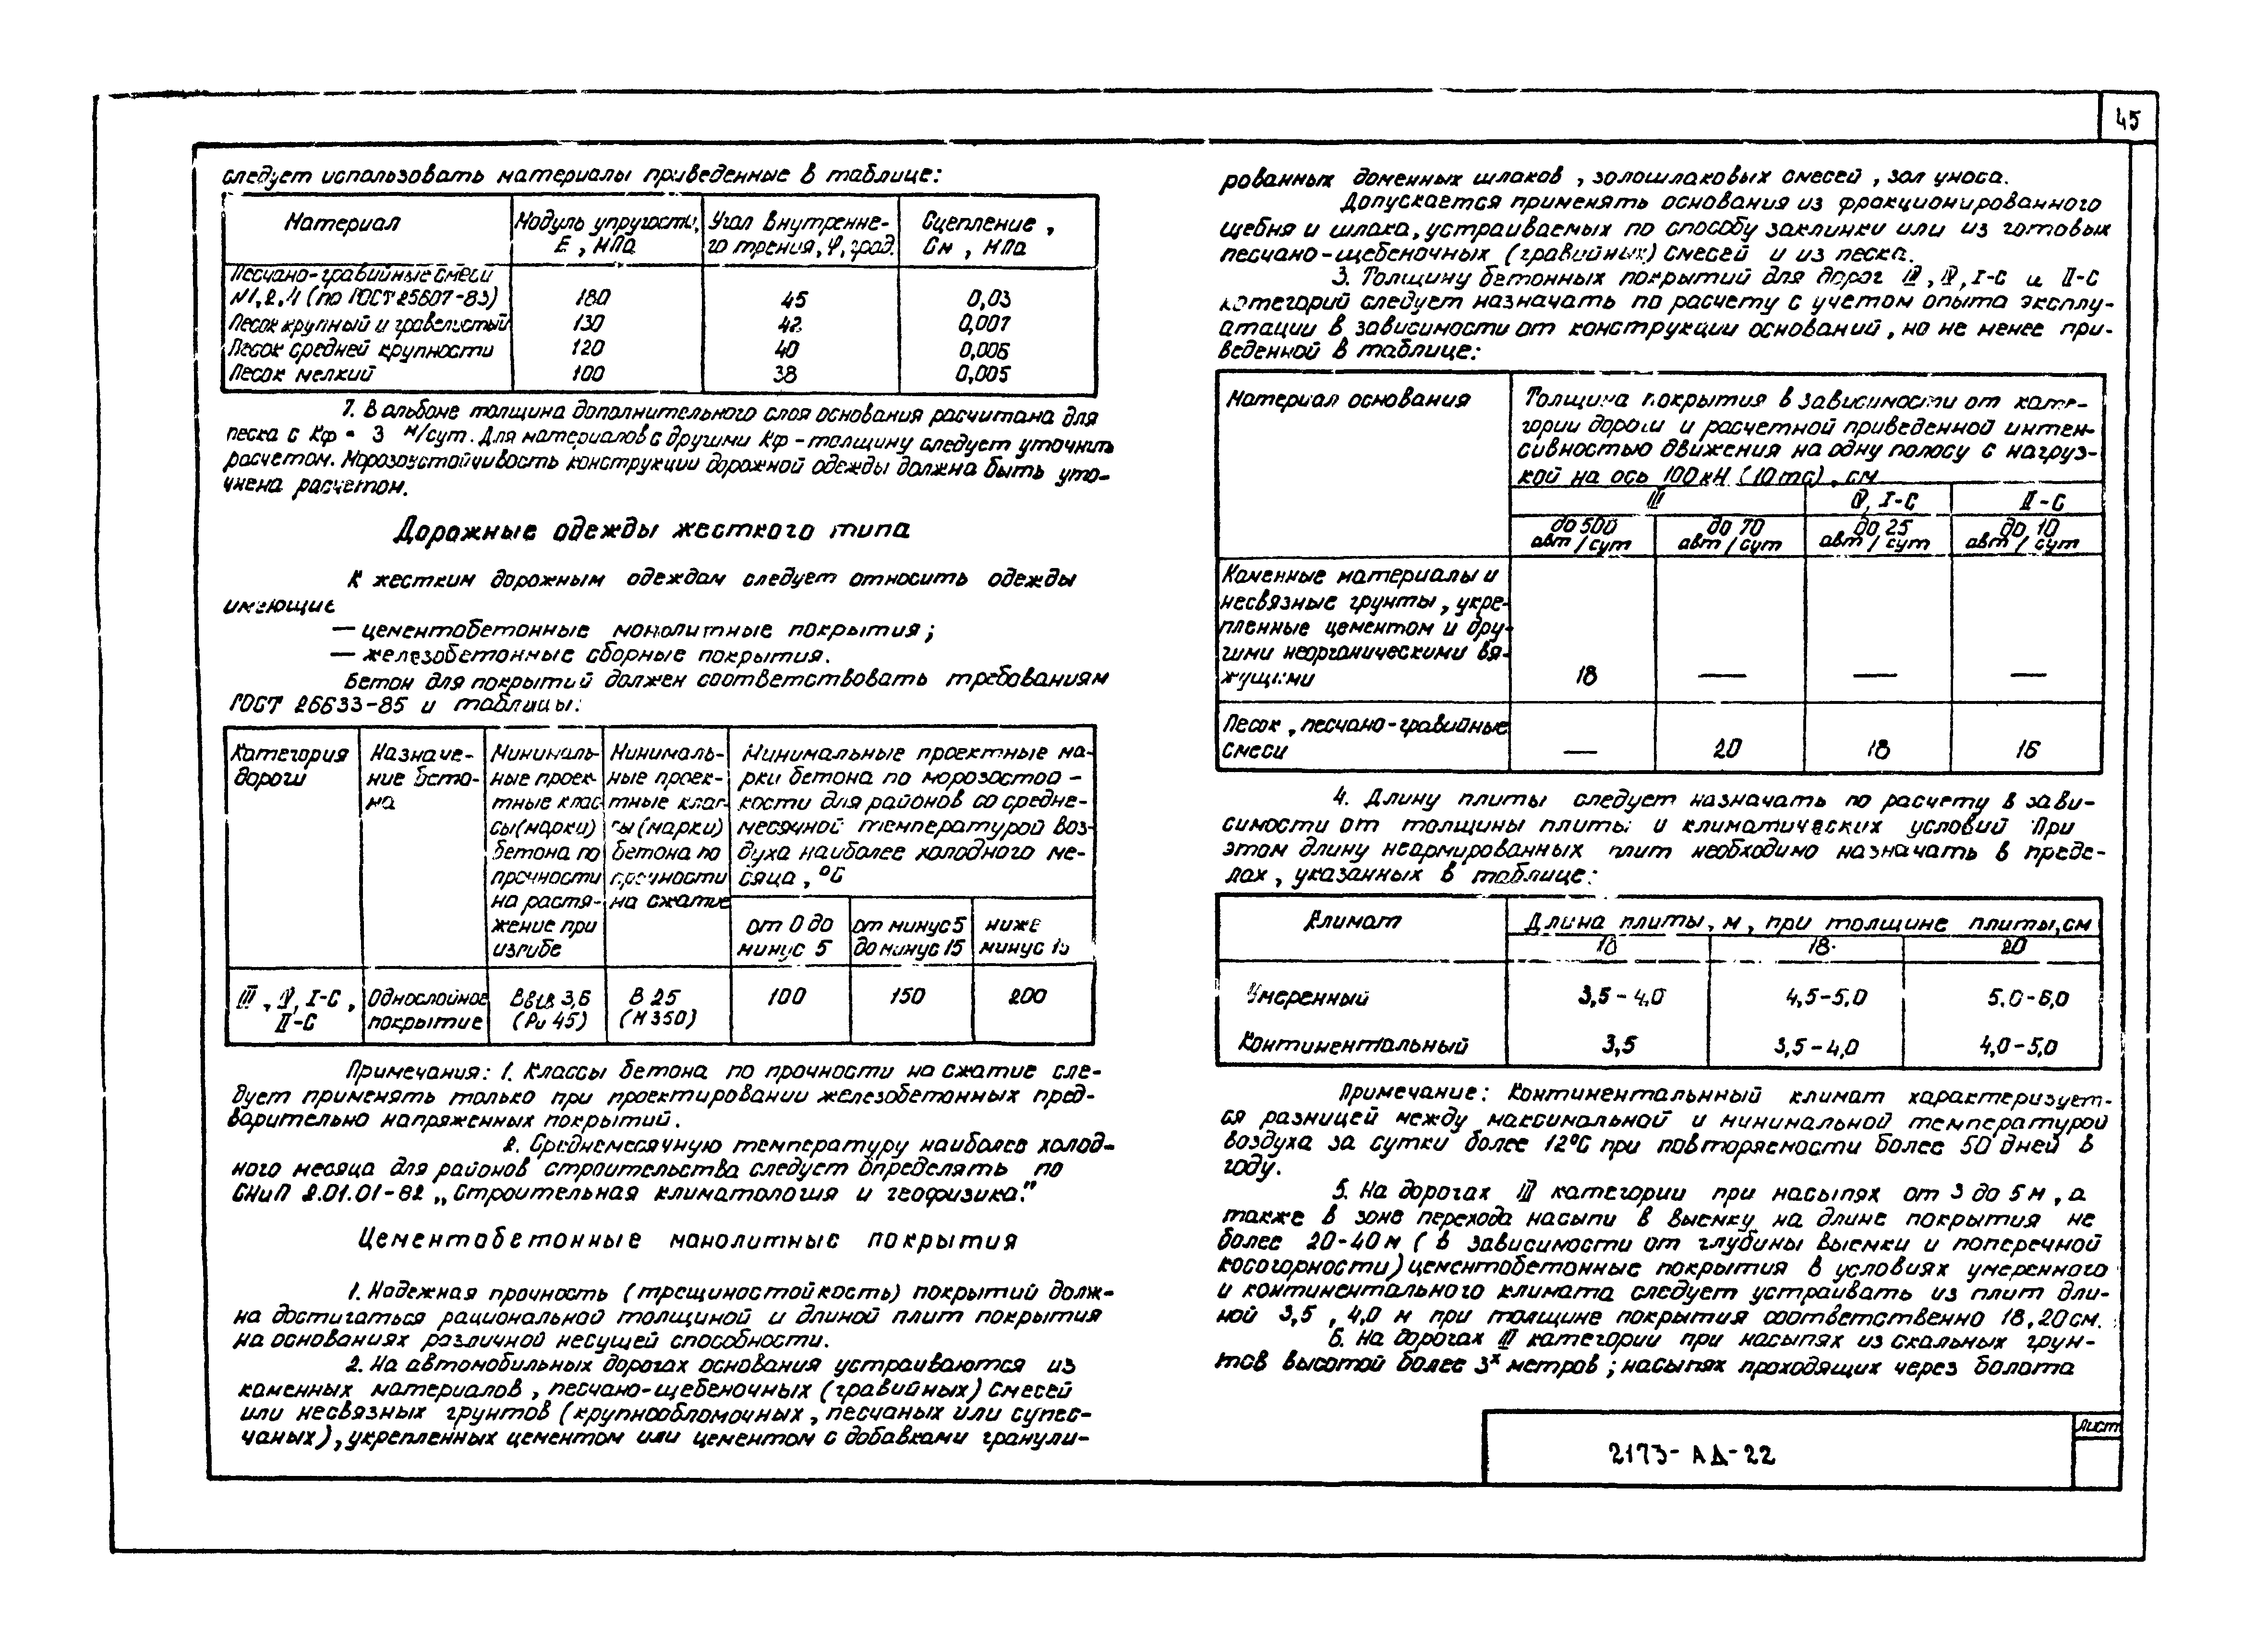 45
следует использовать материалы приведенные в таблице:
Материал
Модуль упругости, Е, МПа
Угол внутренне-го трения, φ, град.
Сцепление, См, МПа
Песчано-гравийные смеси
№1,2,4 (по ГОСТ 25607-83) 180 45 0,03
Песок крупный и гравелистый 130 42 0,007
Песок средней крупности 120 40 0,006
Песок мелкий 100 38 0,005
7. В альбоме толщина дополнительного слоя основания расчитана для
песка с Кф = 3 м/сут. Для материалов с другими Кф - толщину следует уточнить
расчетом. Морозоустойчивость конструкции дорожной одежды должна быть уто-
чнена расчетом.
Дорожные одежды жесткого типа
К жестким дорожным одеждам следует относить одежды
имеющие
— цементобетонные монолитные покрытия;
— железобетонные сборные покрытия.
Бетон для покрытий должен соответствовать требованиям
ГОСТ 26633-85 и таблицы:
Категория дороги
Назначе-ние бето-на
Минималь-ные проек-тные клас-сы (марки) бетона по прочности на растя-жение при изгибе
Минималь-ные проек-тные клас-сы (марки) бетона по прочности на сжатие
Минимальные проектные ма-
рки бетона по морозостой-
кости для районов со средне-
месячной температурой воз-
духа наиболее холодного ме-
сяца, °С
от 0 до минус 5
от минус 5 до минус 15
ниже минус 15
III, IV, I-С, II-С
Однослойное покрытие
Вbtb 3,6 (Ри 45)
В 25 (М 350)
100 150 200
Примечания: 1. Классы бетона по прочности на сжатие сле-
дует применять только при проектировании железобетонных пред-
варительно напряженных покрытий.
2. Среднемесячную температуру наиболее холод-
ного месяца для районов строительства следует определять по
СНиП 2.01.01-82 „Строительная климатология и геофизика."
Цементобетонные монолитные покрытия
1. Надежная прочность (трещиностойкость) покрытий долж-
на достигаться рациональной толщиной и длиной плит покрытия
на основаниях различной несущей способности.
2. На автомобильных дорогах основания устраиваются из
каменных материалов, песчано-щебеночных (гравийных) смесей
или несвязных грунтов (крупнообломочных, песчаных или супес-
чаных), укрепленных цементом или цементом с добавками гранули-
рованных доменных шлаков, золошлаковых смесей, зол уноса.
Допускается применять основания из фракционированного
щебня и шлака, устраиваемых по способу заклинки или из готовых
песчано-щебеночных (гравийных) смесей и из песка.
3. Толщину бетонных покрытий для дорог III, IV, I-С и II-С
категорий следует назначать по расчету с учетом опыта эксплу-
атации в зависимости от конструкции оснований, но не менее при-
веденной в таблице:
Материал основания
Толщина покрытия в зависимости от кате-
гории дороги и расчетной приведенной интен-
сивностью движения на одну полосу с нагруз-
кой на ось 100 кН (10 тс), см
III IV, I-С II-С
до 500 авт/сут
до 70 авт/сут
до 25 авт/сут
до 10 авт/сут
Каменные материалы и
несвязные грунты, укре-
пленные цементом и дру-
гими неорганическими вя-
жущими 18 — — —
Песок, песчано-гравийные
смеси — 20 18 16
4. Длину плиты следует назначать по расчету в зави-
симости от толщины плиты и климатических условий При
этом длину неармированных плит необходимо назначать в преде-
лах, указанных в таблице:
Климат
Длина плиты, м, при толщине плиты, см
16 18 20
Умеренный 3,5-4,0 4,5-5,0 5,0-6,0
Континентальный 3,5 3,5-4,0 4,0-5,0
Примечание: Континентальнный климат характеризует-
ся разницей между максимальной и минимальной температурой
воздуха за сутки более 12°С при повторяемости более 50 дней в
году.
5. На дорогах III категории при насыпях от 3 до 5 м, а
также в зоне перехода насыпи в выемку на длине покрытия не
более 20-40 м (в зависимости от глубины выемки и поперечной
косогорности) цементобетонные покрытия в условиях умеренного
и континентального климата следует устраивать из плит дли-
ной 3,5, 4,0 м при толщине покрытия соответственно 18, 20 см.
6. На дорогах III категории при насыпях из скальных грун-
тов высотой более 3х метров; насыпях проходящих через болота
2173-АД-22
Лист